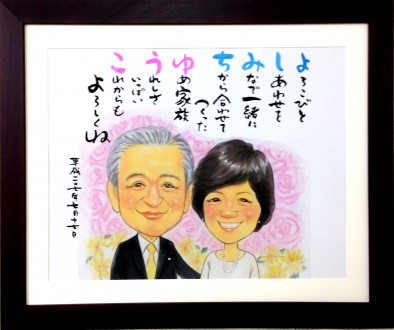 よろこびと
しあわせを
みなで一緒に
ちから合わせて
つくった
ゆめ家族
うれしさ
いっぱい
これからも
よろしくね
平成二十七年七月十七日